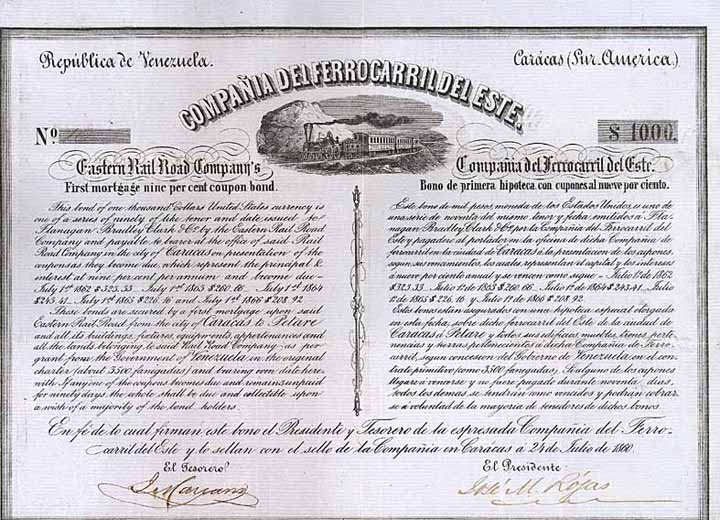 República de Venezuela.
Carácas (Sur. America.)
COMPAÑIA DEL FERROCARRIL DEL ESTE.
Nº
$ 1000.
Eastern Rail Road Company's
First mortgage nine per cent coupon bond.
This bond of one thousand Dollars United States currency is
one of a series of ninety of like tenor and date issued to
Flanagan Bradley Clark & Co. by the Eastern Rail Road
Company and payable to bearer at the office of said Rail
Road Company in the city of Carácas on presentation of the
coupons as they become due, which represent the principal &
interest at nine per cent per annum and become due–
July 1st 1862 $325.33. July 1st 1863 $260.66. July 1st 1864
$243.41. July 1st 1865 $226.16 and July 1st 1866 $208.92
These bonds are secured by a first mortgage upon said
Eastern Rail Road from the city of Carácas to Petare
and all its buildings, fixtures, equipments, appertenances and
all the lands belonging to said Rail Road Company as per
grant from the Government of Venezuela in the original
charter (about 3500 fanegadas) and bearing even date here
with. If any one of the coupons becomes due and remains unpaid
for ninety days, the whole shall be due and collectible upon
a wish of a majority of the bond holders.
Compañia del Ferrocarril del Este.
Bono de primera hipoteca con cupones al nueve por ciento.
Este bono de mil pesos, moneda de los Estados Unidos, es uno de
una serie de noventa del mismo tenor y fecha emitidos á Fla-
nagan Bradley Clark & Co. por la Compañia del Ferrocarril del
Este y pagadero al portador en la oficina de dicha Compañia de
ferrocarril en la ciudad de Carácas á la presentacion de los cupones,
segun su vencimiento, los cuales representan el capital y los intereses
á nueve por ciento anual y se vencen como sigue – Julio 1º de 1862
$325.33. Julio 1º de 1863 $260.66. Julio 1º de 1864 $243.41. Julio
1º de 1865 $226.16 y Julio 1º de 1866 $208.92.
Estos bonos están asegurados con una hipoteca especial otorgada
en esta fecha, sobre dicho ferrocarril del Este de la ciudad de
Carácas á Petare y todos sus edificios, muebles, trenes, perte-
nencias y tierras pertenecientes á dicha Compañia de Ferro-
carril, segun concesion del Gobierno de Venezuela en el con-
trato primitivo (como 3500 fanegadas). Si alguno de los cupones
llegare á vencerse y no fuere pagado durante noventa dias,
todos los demas se tendrán como vencidos y podrán cobrar-
se á voluntad de la mayoria de tenedores de dichos bonos.
En fé de lo cual firman este bono el Presidente y Tesorero de la espresada Compañia del Ferro-
carril del Este y lo sellan con el sello de la Compañia en Carácas á 24 de Julio de 1860.
El Tesorero
El Presidente
José M. Rójas